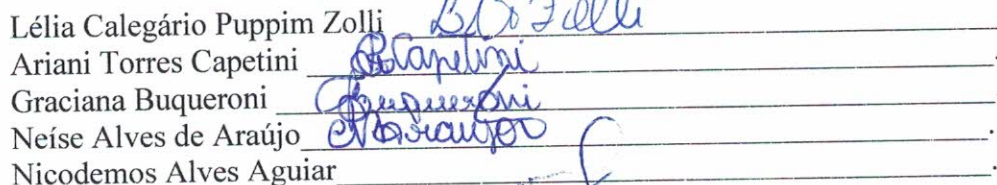 Lélia Calegário Puppim Zolli
Ariani Torres Capetini Capetini.
Graciana Buqueroni Buqueroni
Neíse Alves de Araújo NAraujo.
Nicodemos Alves Aguiar.